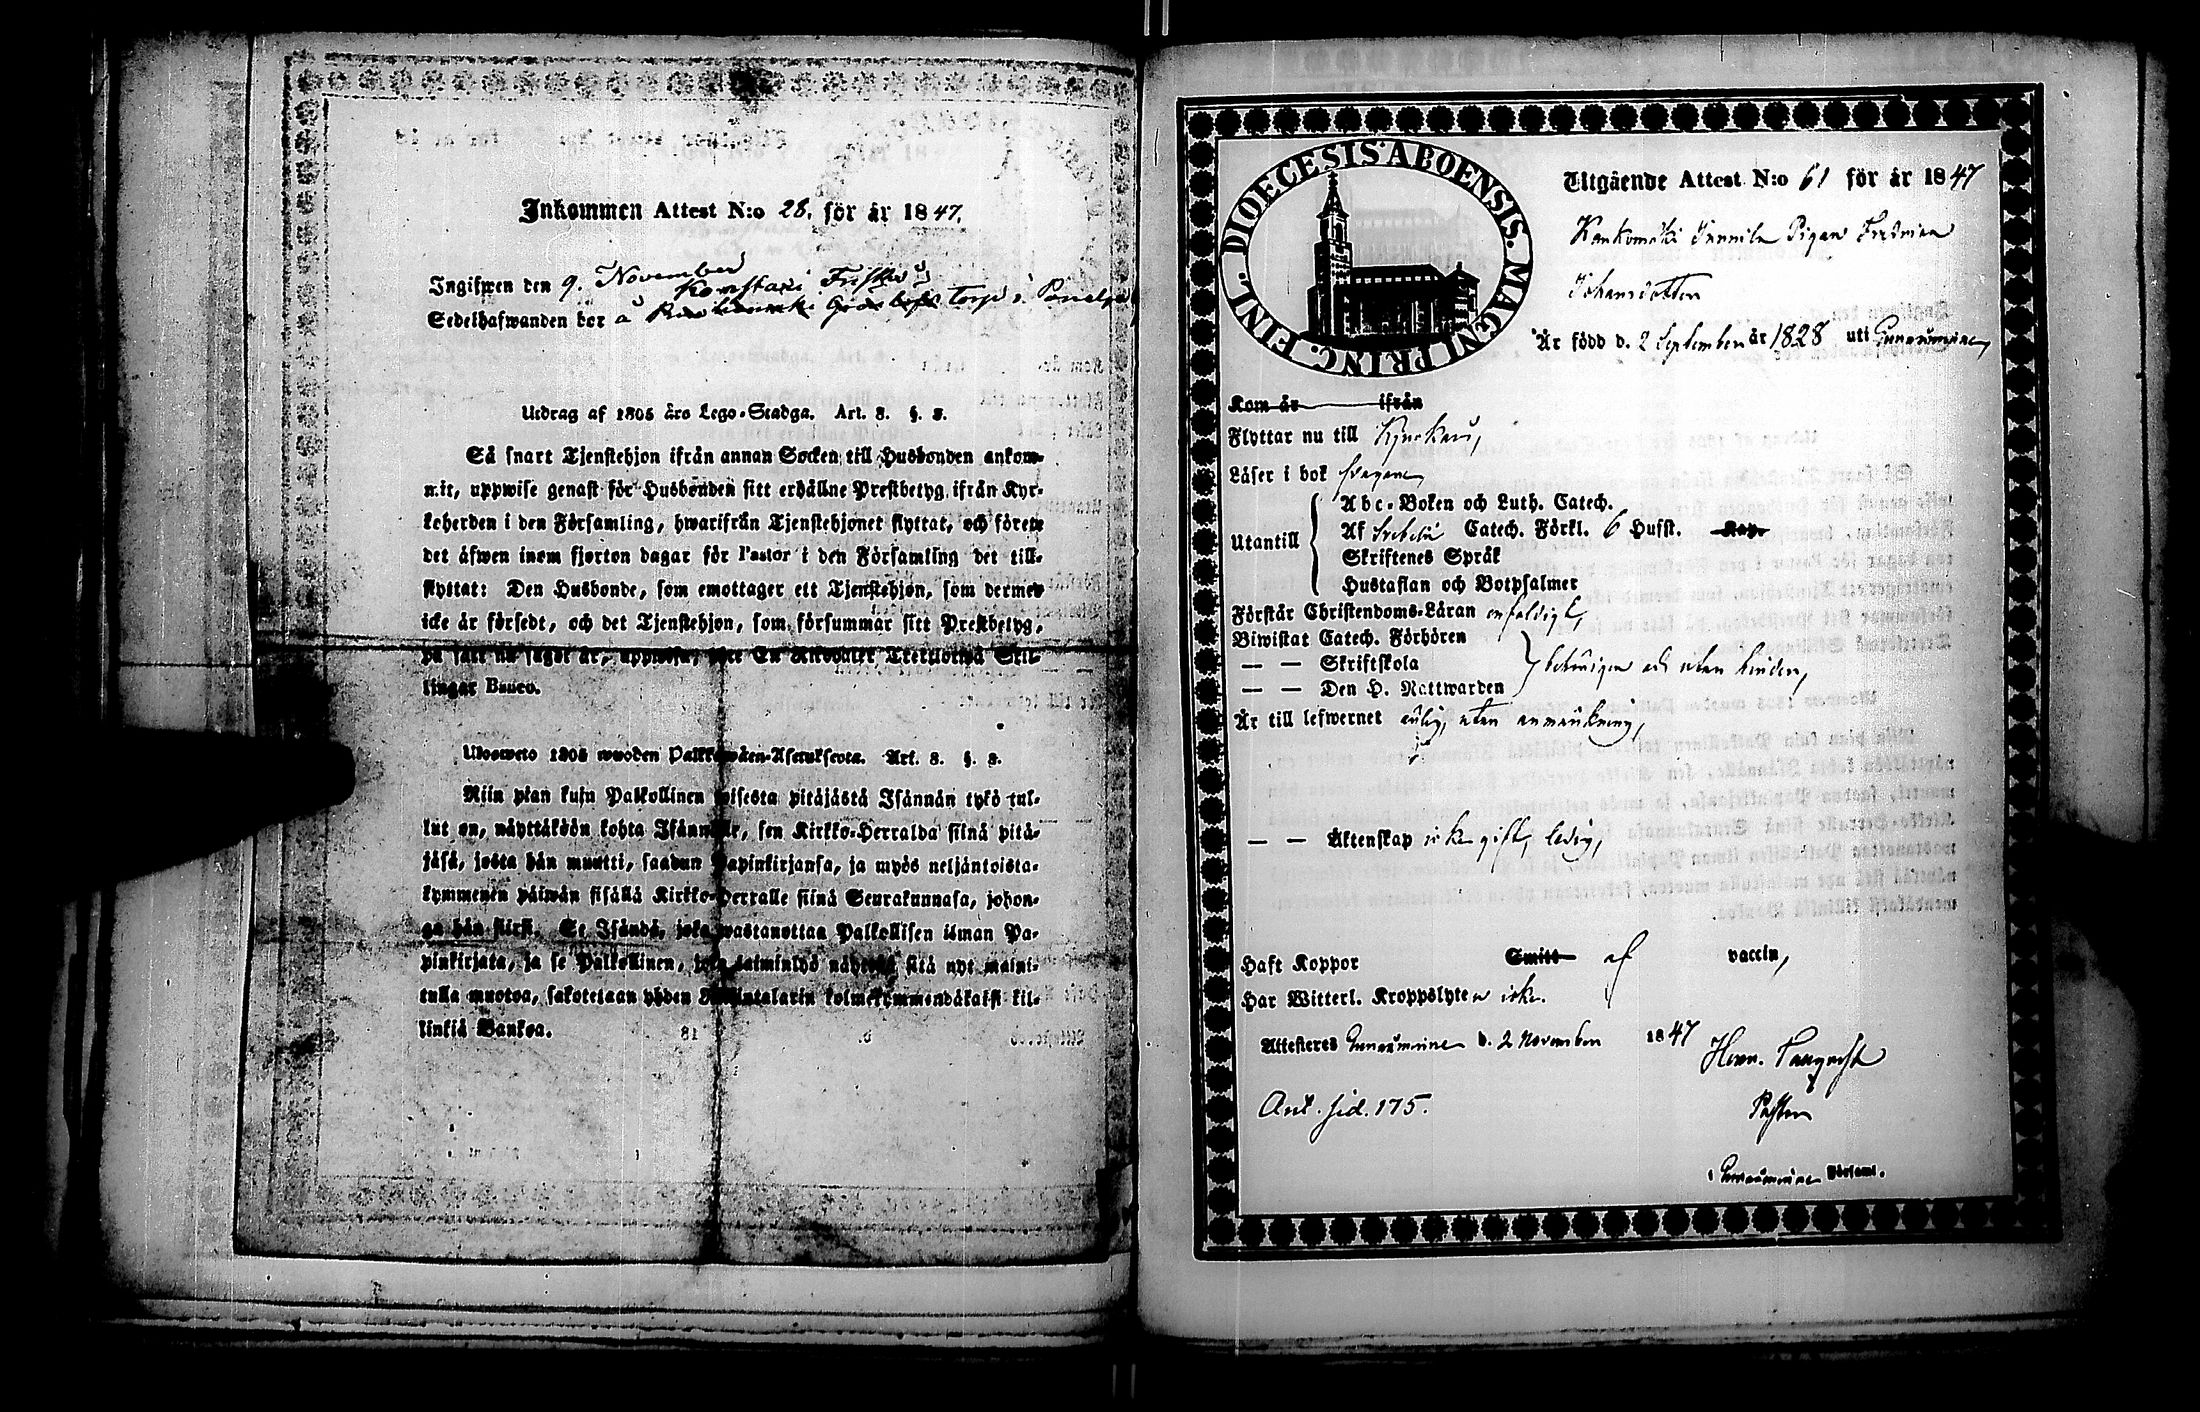 Inkommen Attest N:o 28. för år 1847.
Ingifwen den 9. November
Sedelhafwanden bor å Torp i
Utdrag af 1805 års Lego-Stadga. Art. 8. §. 8.
Så snart Tjenstehjon ifrån annan Socken till Husbonden ankom-
mit, uppwise genast för Husbonden sitt erhållne Prestbetyg ifrån Kyr-
koherden i den Församling, hwarifrån Tjenstehjonet flyttat, och förete
det äfwen inom fjorton dagar för Pastor i den Församling det till-
flyttat: Den Husbonde, som emottager ett Tjenstehjon, som dermed
icke är försedt, och det Tjenstehjon, som försummar sitt Prestbetyg,
på sätt nu sagdt är, uppwisa, böte En Riksdaler Trettiotwå Skil-
lingar Banco.
Ulosweto 1805 wuoden Palkkawäen-Asetuksesta. Art. 8. §. 8.
Niin pian kuin Palkollinen toisesta pitäjästä Isännän tykö tul-
lut on, näyttäköön kohta Isännälle, sen Kirkko-Herralda siinä pitä-
jäsä, josta hän muutti, saadun Papinkirjansa, ja myös neljäntoista-
kymmenen päiwän sisällä Kirkko-Herralle siinä Seurakunnasa, johon-
ga hän siirsi. Se Isändä, joka wastanottaa Palkollisen ilman Pa-
pinkirjata, ja se Palkollinen, joka laiminlyö näyttää sitä nyt maini-
tulla muotoa, sakotetaan yhden Riksintalarin kolmekymmendäkaksi kil-
linkiä Bankoa.
DIOECESIS ABOENSIS. MAGNI PRINC. FINL.
Utgående Attest N:o 61 för år 1847
Kankomäki Pigan
Johansdotter
Är född d. 2 September år 1828 uti
Kom år ifrån
Flyttar nu till Kjuloas,
Läser i bok svagare,
Utantill
Abc-Boken och Luth. Catech.
Af Svebelii Catech. Förkl. 6 Hufst. Kap.
Skriftenes Språk
Hustaflan och Botpsalmer
Förstår Christendoms-Läran enfaldigt,
Biwistat Catech. Förhören
— — Skriftskola
— — Den H. Nattwarden
behörigen och utan hinder,
Är till lefwernet ärlig, utan anmärkning,
— — Äktenskap icke gift, ledig,
Haft Koppor Smitt af vaccin,
Har Witterl. Kroppslyten icke.
Attesteras d. 2 November 1847
Ant. sid. 175.
Pastor
i Församl.